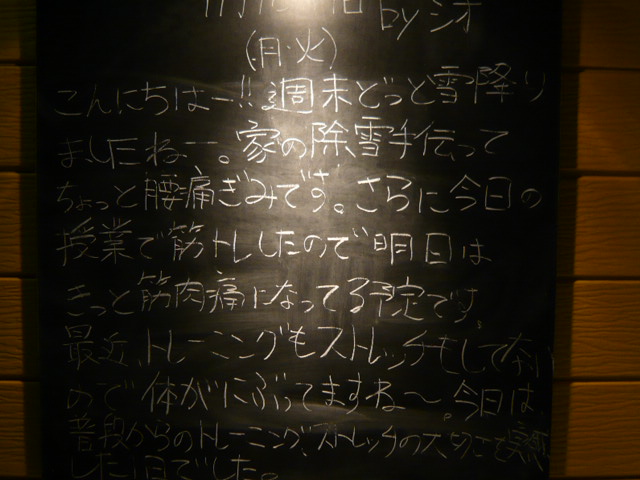 by シオ
(月・火)
こんにちはー!!週末どっと雪降り
ましたねー。家の除雪手伝って
ちょっと腰痛ぎみです。さらに今日の
授業で筋トレしたので明日は
きっと筋肉痛になってる予定です。
最近、トレーニングもストレッチもしてない
ので体がにぶってますね〜。今日は
普段からのトレーニング、ストレッチの大切さを実感
した1日でした。